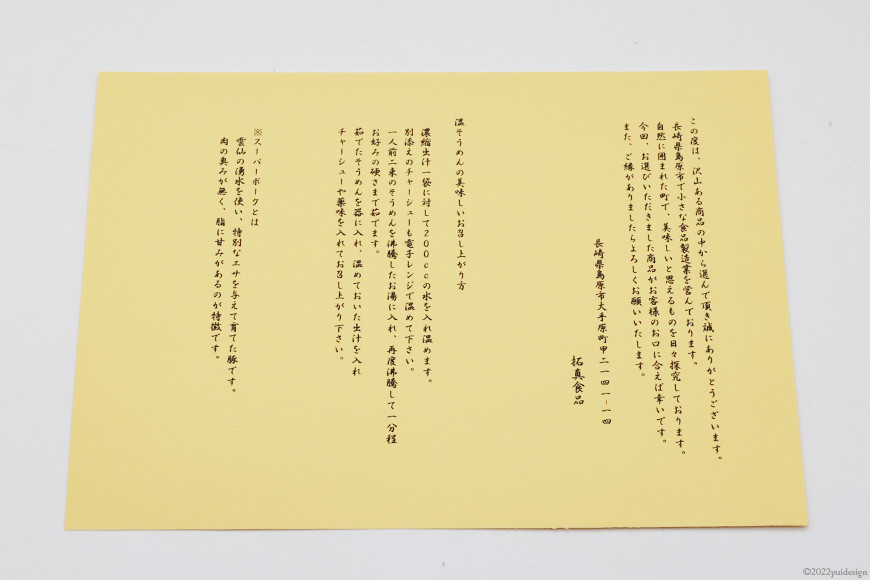 この度は、沢山ある商品の中から選んで頂き誠にありがとうございます。
長崎県島原市で小さな食品製造業を営んでおります。
自然に囲まれた町で、美味しいと思えるものを日々探究しております。
今回、お選びいただきました商品がお客様のお口に合えば幸いです。
また、ご縁がありましたらよろしくお願いいたします。
長崎県島原市大手原町甲二一四一-一四
拓真食品
温そうめんの美味しいお召し上がり方
濃縮出汁一袋に対して200ccの水を入れ温めます。
別添えのチャーシューも電子レンジで温めて下さい。
一人前二束のそうめんを沸騰したお湯に入れ、再度沸騰して一分程
お好みの硬さまで茹でます。
茹でたそうめんを器に入れ、温めておいた出汁を入れ
チャーシューや薬味を入れてお召し上がり下さい。
※スーパーポークとは
雲仙の湧水を使い、特別なエサを与えて育てた豚です。
肉の臭みが無く、脂に甘みがあるのが特徴です。
©2022yuidesign